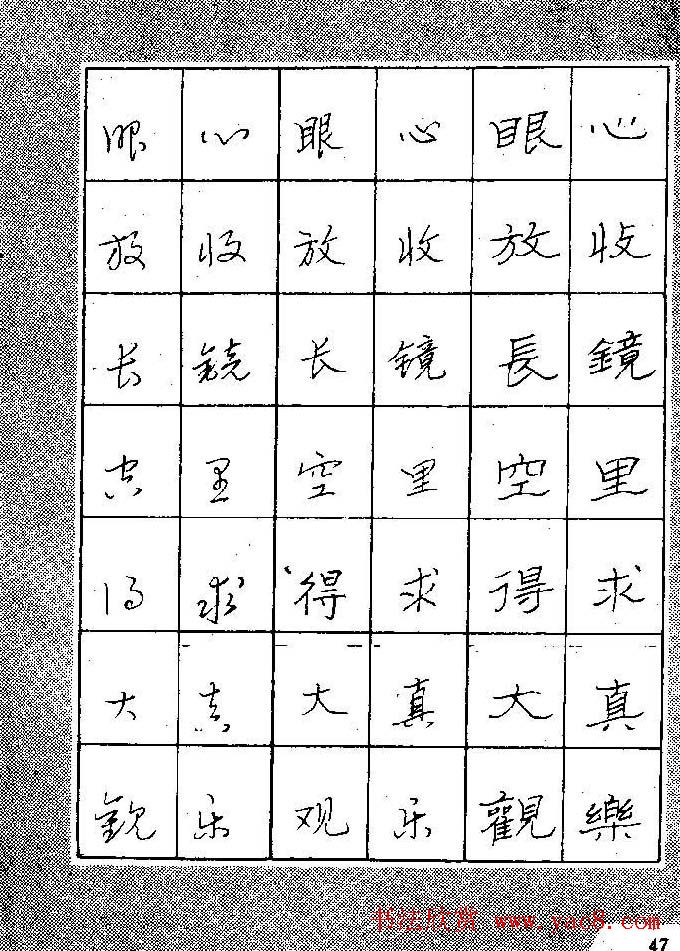 心收鏡里求真樂
眼放長空得大觀
心收镜里求真乐
眼放长空得大观
心收镜里求真乐
眼放长空得大观
书法欣赏 www.yac8.com
47